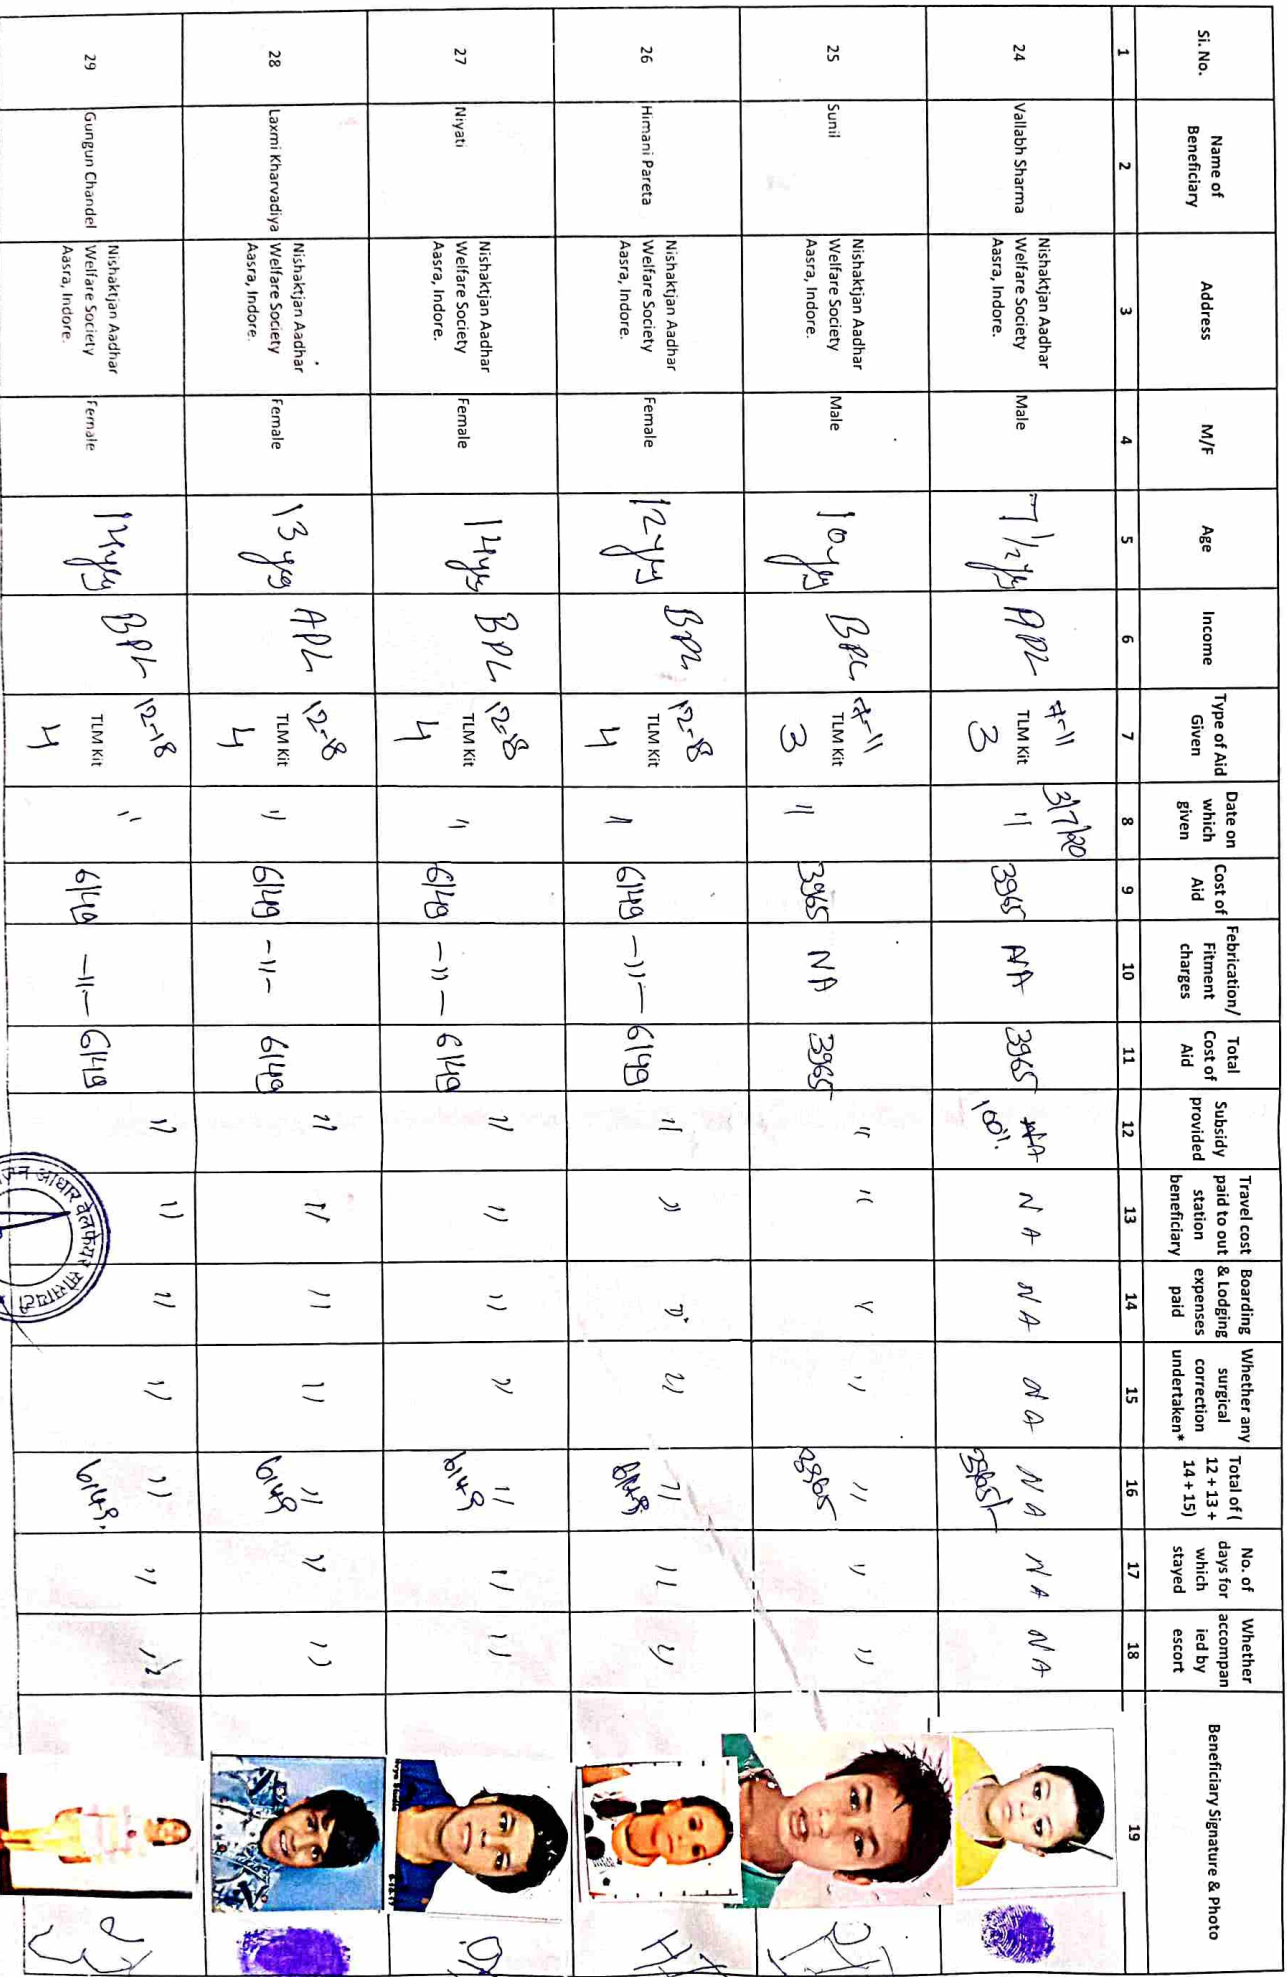 Si. No.
Name of
Beneficiary
Address
M/F
Age
Income
Type of Aid
Given
Date on
which
given
Cost of
Aid
Febrication/
Fitment
charges
Total
Cost of
Aid
Subsidy
provided
Travel cost
paid to out
station
beneficiary
Boarding
& Lodging
expenses
paid
Whether any
surgical
correction
undertaken*
Total of (
12 + 13 +
14 + 15)
No. of
days for
which
stayed
Whether
accompan
ied by
escort
Beneficiary Signature & Photo
1 2 3 4 5 6 7 8 9 10 11 12 13 14 15 16 17 18 19
24
Vallabh Sharma
Nishaktjan Aadhar
Welfare Society
Aasra, Indore.
Male
7 1/2 yrs
APL
7-11
TLM Kit
3
3/7/20
"
3965
NA
3965
NA
100%
NA
NA
NA
NA
3965/-
NA
NA
25
Sunil
Nishaktjan Aadhar
Welfare Society
Aasra, Indore.
Male
10 yrs
BPL
7-11
TLM Kit
3
"
3965
NA
3965
"
"
"
"
"
3965
"
"
26
Himani Pareta
Nishaktjan Aadhar
Welfare Society
Aasra, Indore.
Female
12 yrs
BPL
12-18
TLM Kit
4
"
6149
-"-
6149
"
"
"
"
"
6149
"
"
27
Niyati
Nishaktjan Aadhar
Welfare Society
Aasra, Indore.
Female
14 yrs
BPL
12-18
TLM Kit
4
"
6149
-"-
6149
"
"
"
"
"
6149
"
"
28
Laxmi Kharvadiya
Nishaktjan Aadhar
Welfare Society
Aasra, Indore.
Female
13 yrs
APL
12-18
TLM Kit
4
"
6149
-"-
6149
"
"
"
"
"
6149
"
"
29
Gungun Chandel
Nishaktjan Aadhar
Welfare Society
Aasra, Indore.
Female
14 yrs
BPL
12-18
TLM Kit
4
"
6149
-"-
6149
"
"
"
"
"
6149.
"
"
आधार वेलफेयर सोसायटी